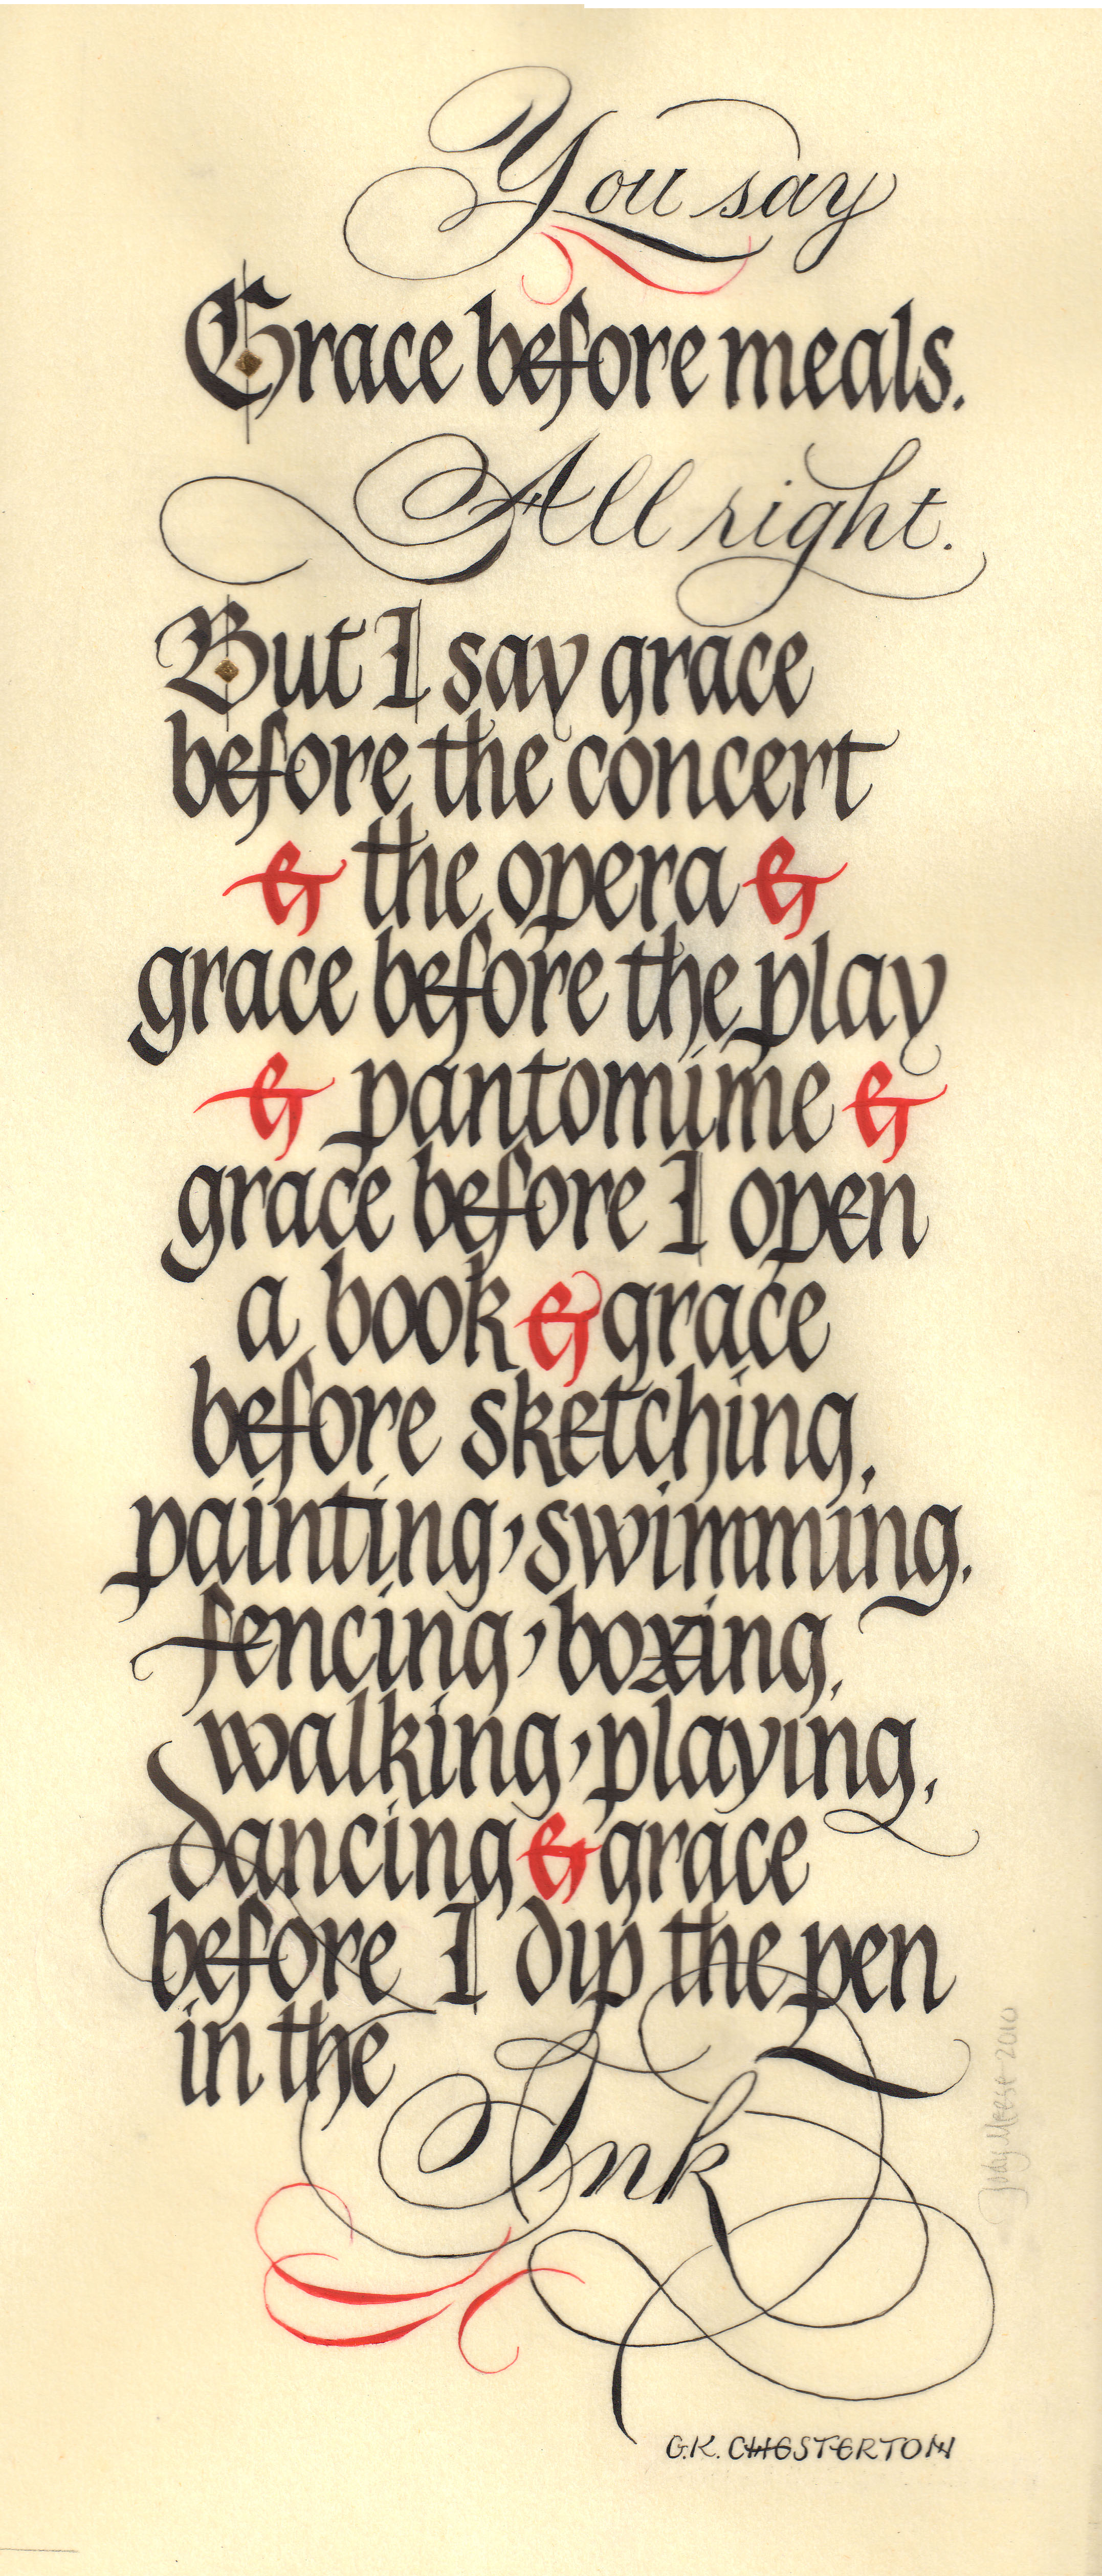 You say
Grace before meals.
All right.
But I say grace
before the concert
& the opera &
grace before the play
& pantomime &
grace before I open
a book & grace
before sketching,
painting, swimming,
fencing, boxing,
walking, playing,
dancing & grace
before I dip the pen
in the
Ink
Jody Meese 2010
G.K. CHESTERTON